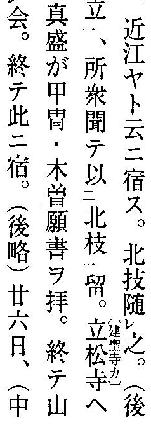 近江ヤト云ニ宿ス。北技随レ之。（後
立一、所衆聞テ以ニ北枝一留。立松寺へ
（建聖寺カ）
真盛が甲冑・木曽願書ヲ拝。終テ山
会。終テ此ニ宿。（後略）廿六日、（中